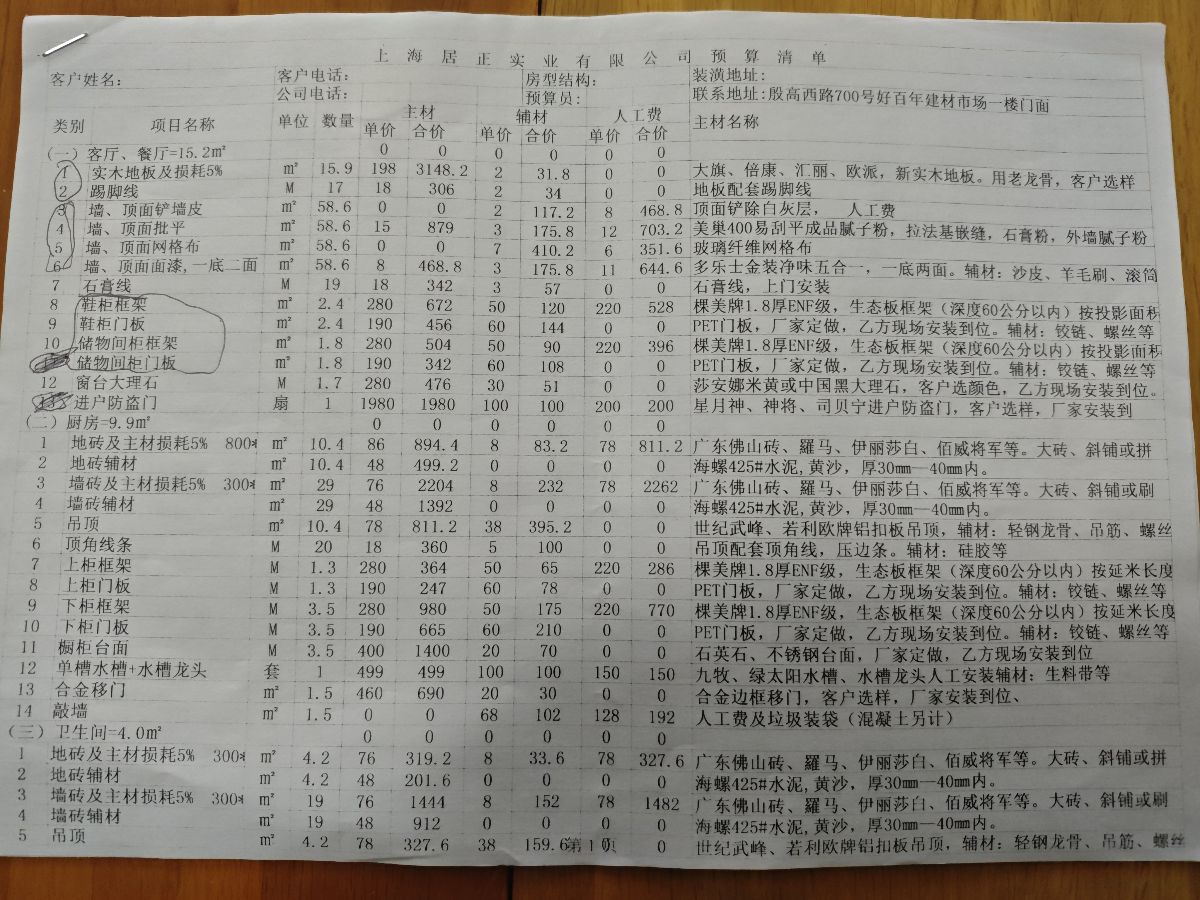 上海居正实业有限公司预算清单
客户姓名: 客户电话: 房型结构: 装潢地址:
公司电话: 预算员: 联系地址:殷高西路700号好百年建材市场一楼门面
类别 项目名称 单位 数量 主材 辅材 人工费 主材名称
单价 合价 单价 合价 单价 合价
(一)客厅、餐厅=15.2㎡ 0 0 0 0 0 0
1 实木地板及损耗5% ㎡ 15.9 198 3148.2 2 31.8 0 0 大旗、倍康、汇丽、欧派，新实木地板。用老龙骨，客户选样
2 踢脚线 M 17 18 306 2 34 0 0 地板配套踢脚线
3 墙、顶面铲墙皮 ㎡ 58.6 0 0 2 117.2 8 468.8 顶面铲除白灰层， 人工费
4 墙、顶面批平 ㎡ 58.6 15 879 3 175.8 12 703.2 美巢400易刮平成品腻子粉，拉法基嵌缝，石膏粉，外墙腻子粉
5 墙、顶面网格布 ㎡ 58.6 0 0 7 410.2 6 351.6 玻璃纤维网格布
6 墙、顶面面漆,一底二面 ㎡ 58.6 8 468.8 3 175.8 11 644.6 多乐士金装净味五合一，一底两面。辅材：沙皮、羊毛刷、滚筒
7 石膏线 M 19 18 342 3 57 0 0 石膏线，上门安装
8 鞋柜框架 ㎡ 2.4 280 672 50 120 220 528 棵美牌1.8厚ENF级，生态板框架（深度60公分以内）按投影面积
9 鞋柜门板 ㎡ 2.4 190 456 60 144 0 0 PET门板，厂家定做，乙方现场安装到位。辅材：铰链、螺丝等
10 储物间柜框架 ㎡ 1.8 280 504 50 90 220 396 棵美牌1.8厚ENF级，生态板框架（深度60公分以内）按投影面积
储物间柜门板 ㎡ 1.8 190 342 60 108 0 0 PET门板，厂家定做，乙方现场安装到位。辅材：铰链、螺丝等
12 窗台大理石 M 1.7 280 476 30 51 0 0 莎安娜米黄或中国黑大理石，客户选颜色，乙方现场安装到位。
进户防盗门 扇 1 1980 1980 100 100 200 200 星月神、神将、司贝宁进户防盗门，客户选样，厂家安装到
(二)厨房=9.9㎡ 0 0 0 0 0 0
1 地砖及主材损耗5% 800* ㎡ 10.4 86 894.4 8 83.2 78 811.2 广东佛山砖、羅马、伊丽莎白、佰威将军等。大砖、斜铺或拼
2 地砖辅材 ㎡ 10.4 48 499.2 0 0 0 0 海螺425#水泥,黄沙，厚30㎜—40㎜内。
3 墙砖及主材损耗5% 300* ㎡ 29 76 2204 8 232 78 2262 广东佛山砖、羅马、伊丽莎白、佰威将军等。大砖、斜铺或刷
4 墙砖辅材 ㎡ 29 48 1392 0 0 0 0 海螺425#水泥,黄沙，厚30㎜—40㎜内。
5 吊顶 ㎡ 10.4 78 811.2 38 395.2 0 0 世纪武峰、若利欧牌铝扣板吊顶，辅材：轻钢龙骨、吊筋、螺丝
6 顶角线条 M 20 18 360 5 100 0 0 吊顶配套顶角线，压边条。辅材：硅胶等
7 上柜框架 M 1.3 280 364 50 65 220 286 棵美牌1.8厚ENF级，生态板框架（深度60公分以内）按延米长度
8 上柜门板 M 1.3 190 247 60 78 0 0 PET门板，厂家定做，乙方现场安装到位。辅材：铰链、螺丝等
9 下柜框架 M 3.5 280 980 50 175 220 770 棵美牌1.8厚ENF级，生态板框架（深度60公分以内）按延米长度
10 下柜门板 M 3.5 190 665 60 210 0 0 PET门板，厂家定做，乙方现场安装到位。辅材：铰链、螺丝等
11 橱柜台面 M 3.5 400 1400 20 70 0 0 石英石、不锈钢台面，厂家定做，乙方现场安装到位
12 单槽水槽+水槽龙头 套 1 499 499 100 100 150 150 九牧、绿太阳水槽、水槽龙头人工安装辅材：生料带等
13 合金移门 ㎡ 1.5 460 690 20 30 0 0 合金边框移门，客户选样，厂家安装到位、
14 敲墙 ㎡ 1.5 0 0 68 102 128 192 人工费及垃圾装袋（混凝土另计）
(三)卫生间=4.0㎡ 0 0 0 0 0 0
1 地砖及主材损耗5% 300* ㎡ 4.2 76 319.2 8 33.6 78 327.6 广东佛山砖、羅马、伊丽莎白、佰威将军等。大砖、斜铺或拼
2 地砖辅材 ㎡ 4.2 48 201.6 0 0 0 0 海螺425#水泥,黄沙，厚30㎜—40㎜内。
3 墙砖及主材损耗5% 300* ㎡ 19 76 1444 8 152 78 1482 广东佛山砖、羅马、伊丽莎白、佰威将军等。大砖、斜铺或刷
4 墙砖辅材 ㎡ 19 48 912 0 0 0 0 海螺425#水泥,黄沙，厚30㎜—40㎜内。
5 吊顶 ㎡ 4.2 78 327.6 38 159.6 0 0 世纪武峰、若利欧牌铝扣板吊顶，辅材：轻钢龙骨、吊筋、螺丝
第 1 页